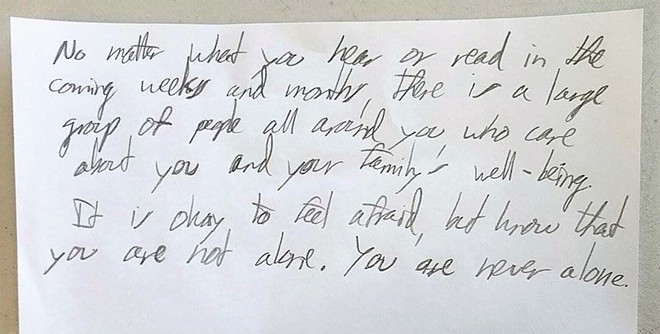 No matter what you hear or read in the
coming weeks and months, there is a large
group of people all around you who care
about you and your family's well-being.
It is okay to feel afraid, but know that
you are not alone. You are never alone.